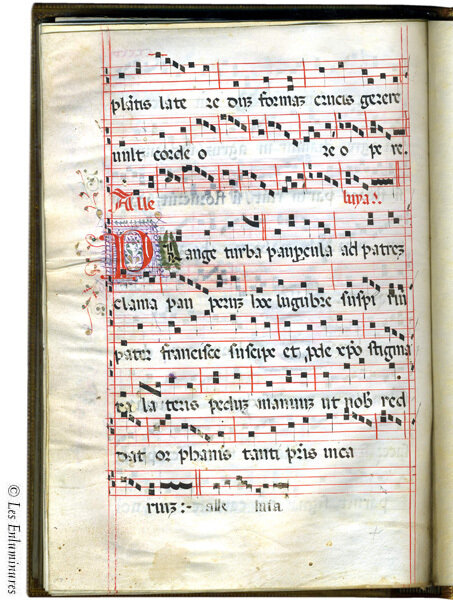 plātis late re dūz formaz crucis gerere
vult corde o re o pe re.
Alle luya:.
Plange turba paupercula ad patrez
clama pau peruz hec lugubre suspi riuz
pater francisce suscipe et p̄de xp̄o stigma
ta la teris peduz manuuz ut nob̄ red
dat or phanis tanti pr̄is uica
riuz :- alle luia
© Les Enluminures